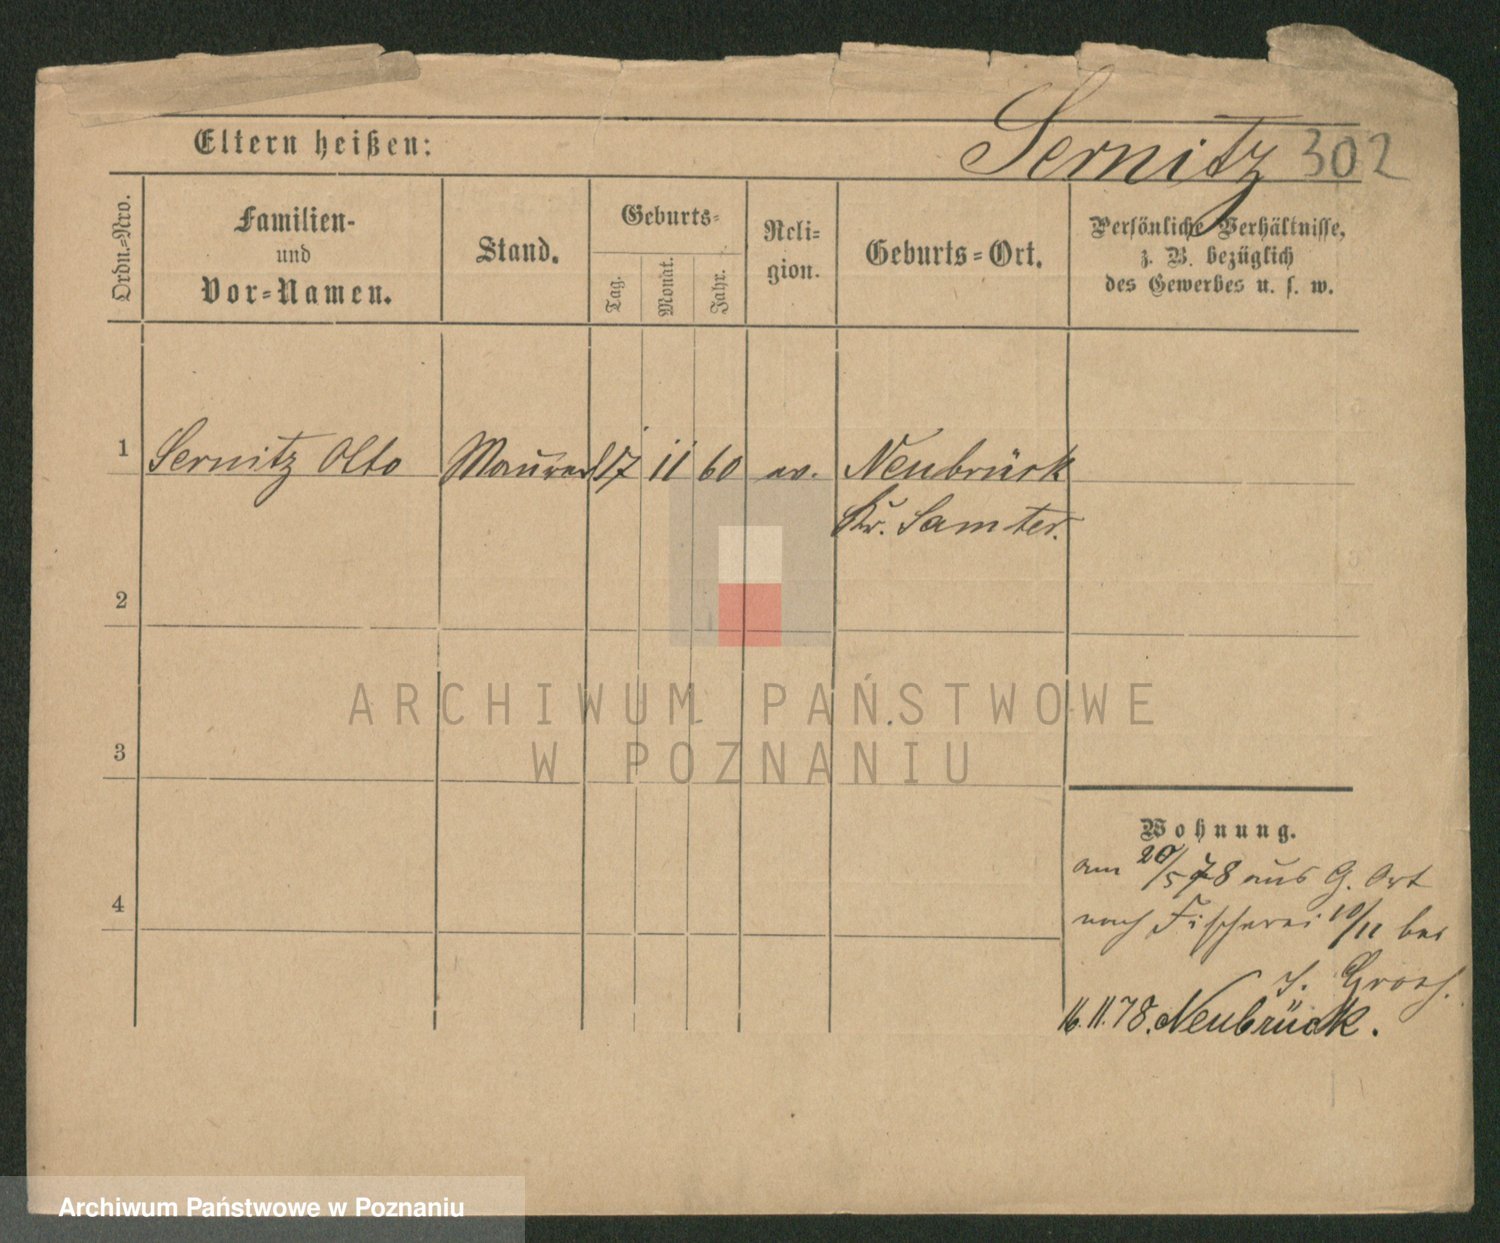 Sernitz 302
Eltern heißen:
Ordn.-Nro.
Familien-
und
Vor-Namen.
Stand.
Geburts-
Tag.
Monat.
Jahr.
Reli-
gion.
Geburts-Ort.
Persönliche Verhältnisse,
z. B. bezüglich
des Gewerbes u. s. w.
1 Sernitz Otto 17 11 60 ev. Neubrück
Kr. Samter.
2
3
4
Wohnung.
am 20/5 78 aus G. Ort
nach Fischerei 10/11 bei
J.
16.11.78. Neubrück.
ARCHIWUM PAŃSTWOWE
W POZNANIU
Archiwum Państwowe w Poznaniu